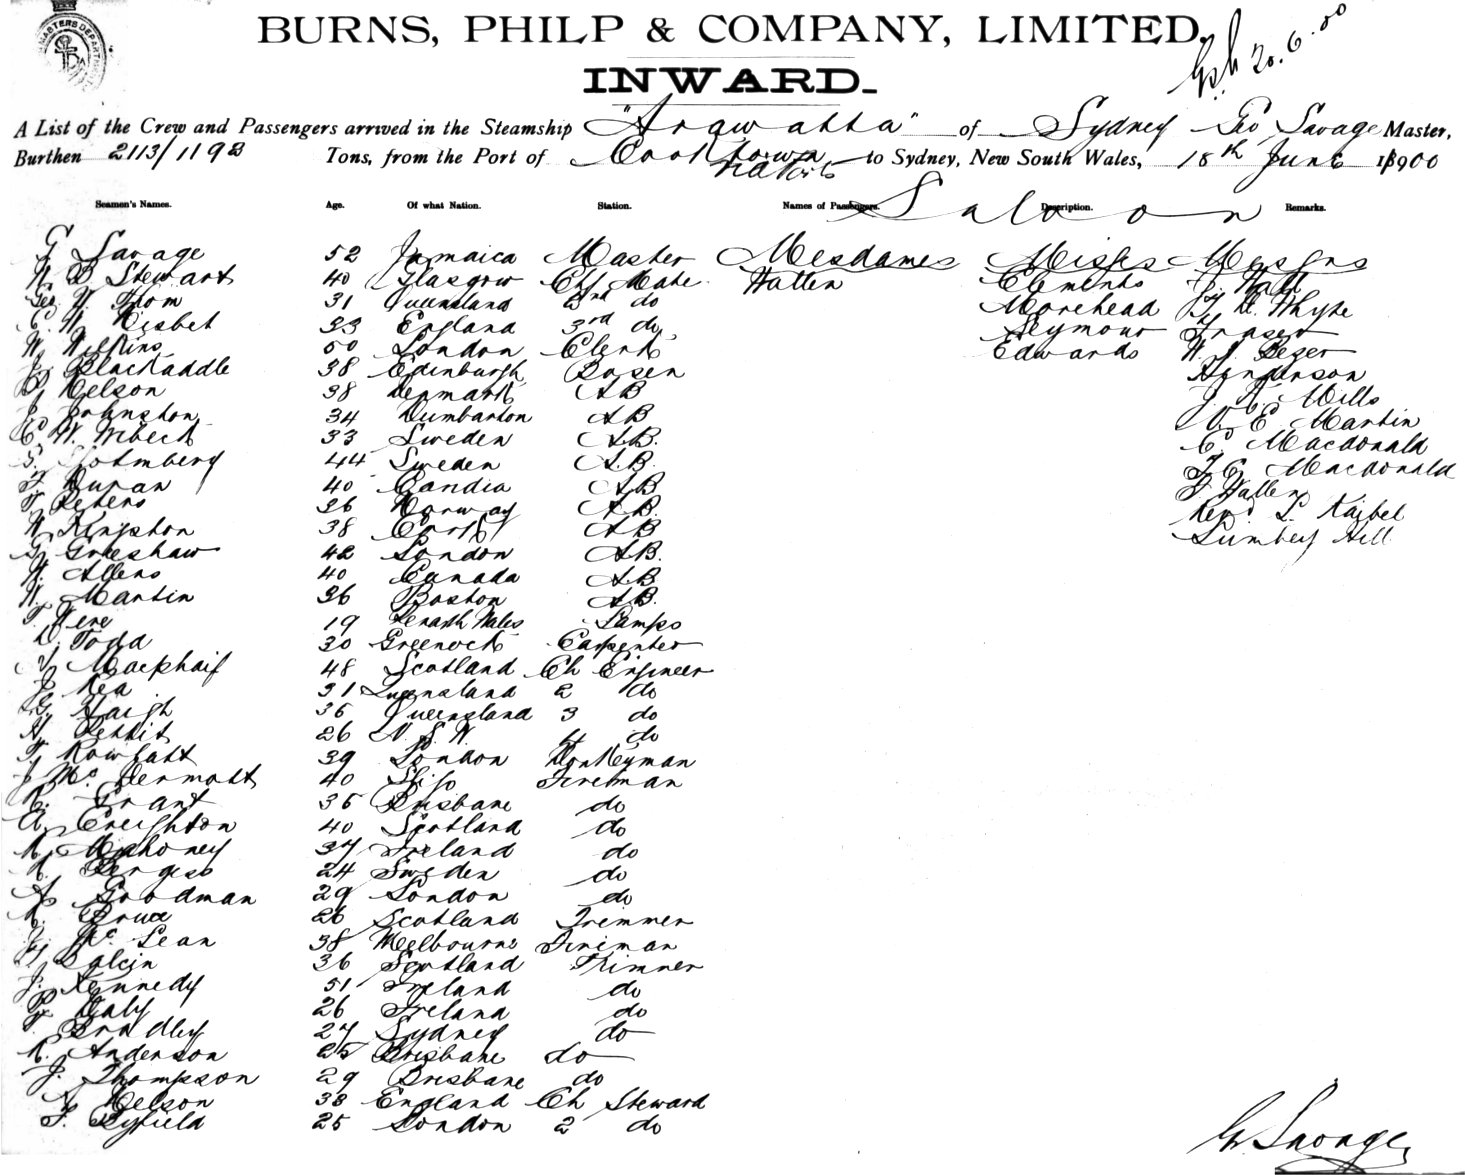 BURNS, PHILP & COMPANY, LIMITED.
20.6.00
INWARD.
A List of the Crew and Passengers arrived in the Steamship "Arawatta" of Sydney Geo Savage Master,
Burthen 2113/1192 Tons, from the Port of Cooktown to Sydney, New South Wales, 18th June 1900
Seamen's Names. Age. Of what Nation. Station. Names of Passengers. Description. Remarks.
Saloon
G Savage 52 Jamaica Master Mesdames Misses Messrs
W B Stewart 40 Glasgow Chf Mate Hatten Clements J. Watt
Geo W Thom 31 Queensland 2nd do Morehead Whyte
C. W. Nisbet 33 England 3rd do Seymour Fraser
W. Wilkins 50 London Clerk Edwards W. J. Gezer
J. Blackaddle 38 Edinburgh Bosen Henderson
P. Nelson 38 Denmark AB J. Mills
J. Johnston 34 Dumbarton AB E Martin
C. W. Wibeck 33 Sweden A.B. C. Macdonald
S. 44 Sweden A.B. T. C. Macdonald
F. Duran 40 Candia AB F Hatten
F. Peters 36 Norway A.B. Revd L. Kaibel
W Kingston 38 Cork AB Lumbey Hill
G. Greeshaw 42 London A.B.
W. Allens 40 Canada A.B.
W. Martin 36 Boston A.B.
T. Were 19 Penarth Wales Lamps
D. Todd 30 Greenock Carpenter
Macphail 48 Scotland Ch Engineer
J. Rea 31 Queensland 2 do
G. Haigh 35 Queensland 3 do
H. Pettit 26 N. S. W. 4 do
F. Rowbatt 39 London Donkeyman
J Mc Dermott 40 Ship Fireman
R. Grant 35 Brisbane do
A. Creighton 40 Scotland do
R. Mahoney 37 Ireland do
R. Bergess 24 Sweden do
A. Goodman 29 London do
R. Bruce 26 Scotland Trimmer
J. Mc Lean 38 Melbourne Fireman
H. Dalein 36 Scotland Trimmer
J. Kennedy 51 Ireland do
P. Daly 26 Ireland do
F. Bradley 27 Sydney do
R. Anderson 25 Brisbane do
J. Thompson 29 Brisbane do
A. Nelson 38 England Ch Steward
F. Byfield 25 London 2 do
G. Savage